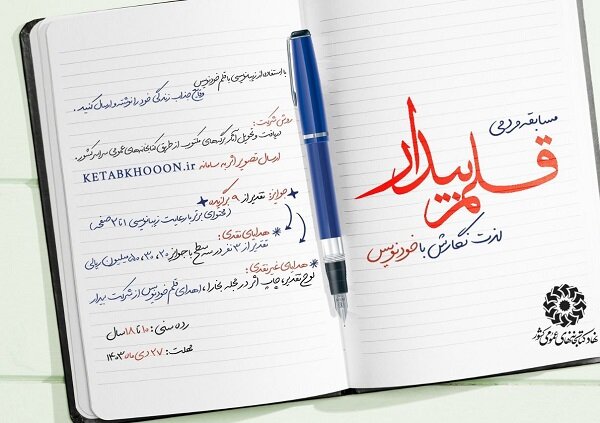 مسابقه مردمی
قلم بیدار
لذت نگارش با خودنویس
نهاد کتابخانه‌های عمومی کشور
با استفاده از زیبانویسی با قلم خودنویس
وقایع جذاب زندگی خود را نوشته و ارسال کنید.
روش شرکت:
دریافت و تحویل آنی برگه‌های مکتوب از طریق کتابخانه‌های عمومی سراسر کشور.
ارسال تصویر اثر به سامانه KETABKHOOON.ir
جوایز: تقدیر از ۹ برگزیده
(محتوای برتر با رعایت زیبانویسی ۱ تا ۳ صفحه)
هدایای نقدی:
تقدیر از ۳ نفر در سه سطح با جوایز ۲۰، ۳۰، ۵۰ میلیون ریالی
هدایای غیر نقدی:
لوح تقدیر، چاپ اثر در مجله بخارا، اهدای قلم خودنویس از شرکت بیدار
رده سنی: ۱۰ تا ۱۸ سال
مهلت: ۲۷ دی ماه ۱۴۰۳